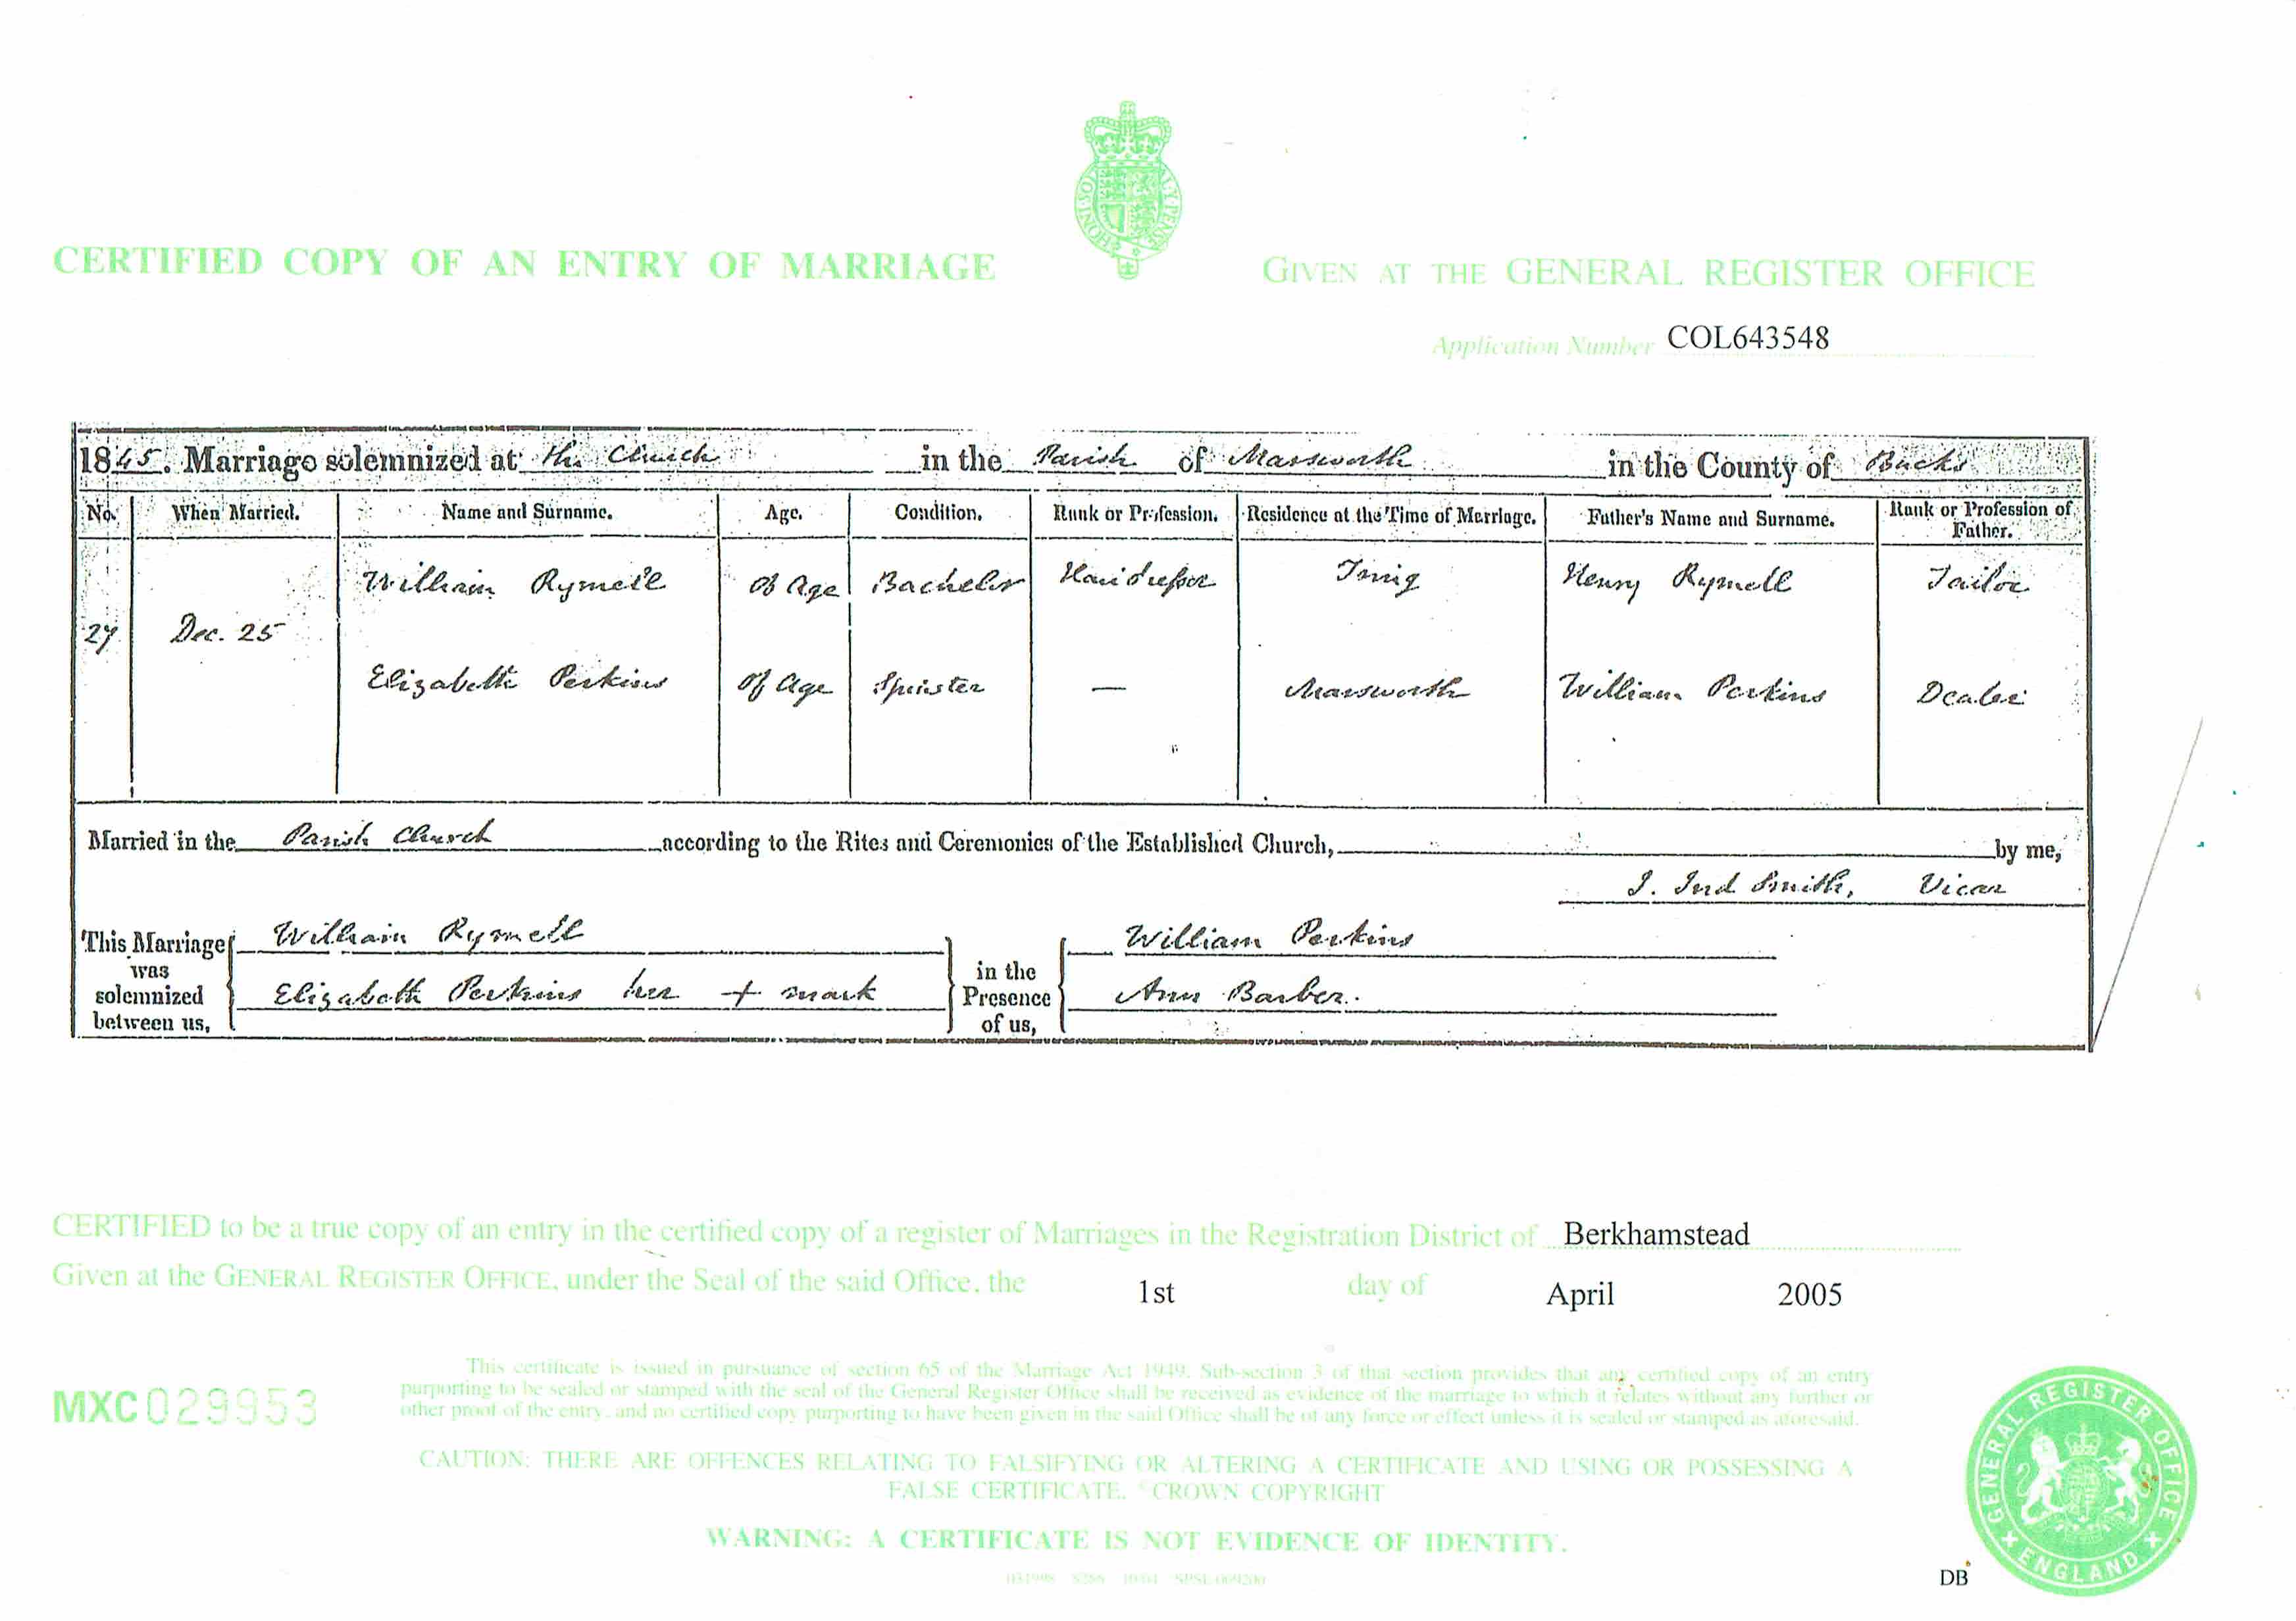 CERTIFIED COPY OF AN ENTRY OF MARRIAGE
GIVEN AT THE GENERAL REGISTER OFFICE
Application Number COL643548
1845. Marriage solemnized at the Church in the Parish of Marsworth in the County of Bucks
No. When Married. Name and Surname. Age. Condition. Rank or Profession. Residence at the Time of Marriage. Father's Name and Surname. Rank or Profession of Father.
William Rymell of Age Bachelor Hairdresser Tring Henry Rymell Tailor
27 Dec. 25
Elizabeth Perkins of Age Spinster — Marsworth William Perkins Dealer
Married in the Parish Church according to the Rites and Ceremonies of the Established Church, by me,
Smith, Vicar
This Marriage was solemnized between us,
William Rymell
Elizabeth Perkins her + mark
in the Presence of us,
William Perkins
Ann Barber.
CERTIFIED to be a true copy of an entry in the certified copy of a register of Marriages in the Registration District of Berkhamstead
Given at the GENERAL REGISTER OFFICE, under the Seal of the said Office, the 1st day of April 2005
This certificate is issued in pursuance of section 65 of the Marriage Act 1949. Sub-section 3 of that section provides that any certified copy of an entry
purporting to be sealed or stamped with the seal of the General Register Office shall be received as evidence of the marriage to which it relates without any further or
other proof of the entry, and no certified copy purporting to have been given in the said Office shall be of any force or effect unless it is sealed or stamped as aforesaid.
MXC 029953
CAUTION: THERE ARE OFFENCES RELATING TO FALSIFYING OR ALTERING A CERTIFICATE AND USING OR POSSESSING A
FALSE CERTIFICATE. ©CROWN COPYRIGHT
WARNING: A CERTIFICATE IS NOT EVIDENCE OF IDENTITY.
GENERAL REGISTER OFFICE
ENGLAND
DB